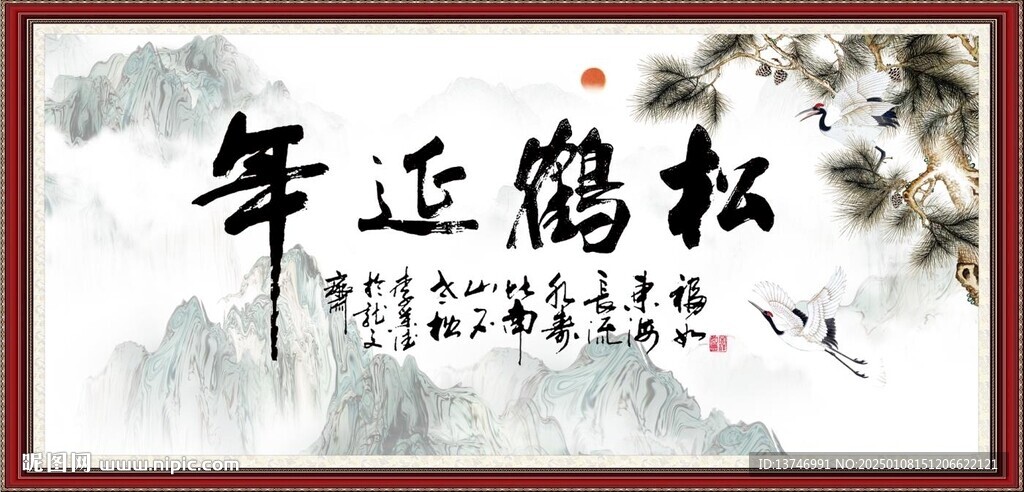 松鹤延年
福如
东海
长流
水寿
比南
山不
老松
于龙文
斋
昵图网 www.nipic.com
ID:13746991 NO:20250108151206622121